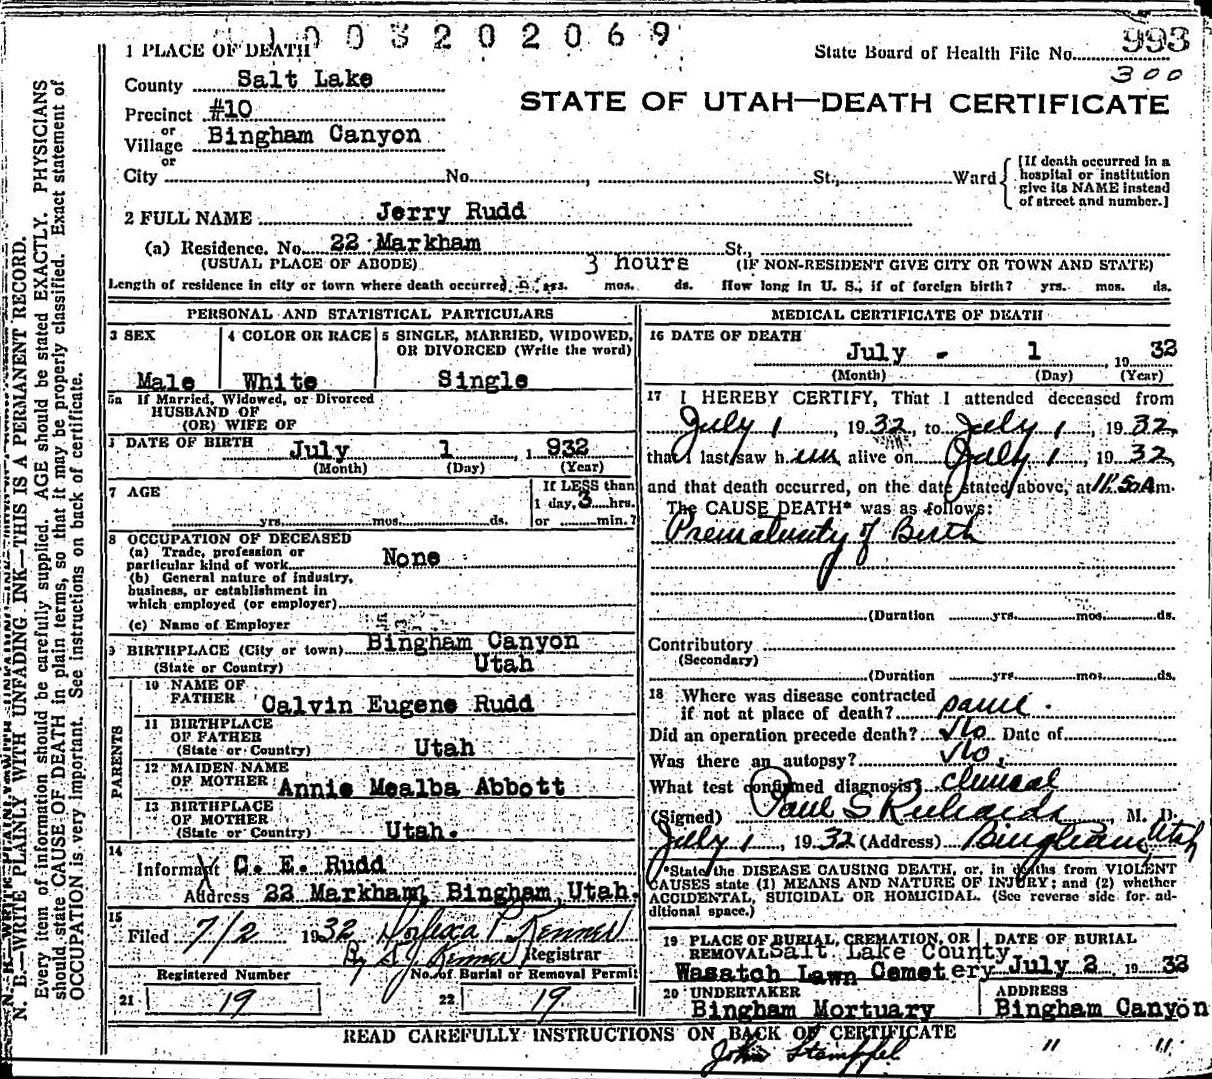 1003202069
1 PLACE OF DEATH
State Board of Health File No. 993
300
County Salt Lake
STATE OF UTAH—DEATH CERTIFICATE
Precinct #10
or
Village Bingham Canyon
or
City No. , St., Ward
[If death occurred in a
hospital or institution
give its NAME instead
of street and number.]
2 FULL NAME Jerry Rudd
(a) Residence. No. 22 Markham St.,
(USUAL PLACE OF ABODE) 3 hours (IF NON-RESIDENT GIVE CITY OR TOWN AND STATE)
Length of residence in city or town where death occurred yrs. mos. ds. How long in U. S., if of foreign birth? yrs. mos. ds.
PERSONAL AND STATISTICAL PARTICULARS
3 SEX
Male
4 COLOR OR RACE
White
5 SINGLE, MARRIED, WIDOWED,
OR DIVORCED (Write the word)
Single
5a If Married, Widowed, or Divorced
HUSBAND OF
(OR) WIFE OF
DATE OF BIRTH July 1 , 1 932
(Month) (Day) (Year)
7 AGE
yrs. mos. ds.
If LESS than
1 day, 3 hrs.
or min.?
8 OCCUPATION OF DECEASED
(a) Trade, profession or
particular kind of work None
(b) General nature of industry,
business, or establishment in
which employed (or employer)
(c) Name of Employer
9 BIRTHPLACE (City or town) Bingham Canyon
(State or Country) Utah
PARENTS
10 NAME OF
FATHER Calvin Eugene Rudd
11 BIRTHPLACE
OF FATHER
(State or Country) Utah
12 MAIDEN NAME
OF MOTHER Annie Mealba Abbott
13 BIRTHPLACE
OF MOTHER
(State or Country) Utah.
14
Informant C. E. Rudd
Address 22 Markham, Bingham, Utah.
15
Filed 7/2 1932 P. Kenner
By Kenner Registrar
Registered Number No. of Burial or Removal Permit
21 19 22 19
MEDICAL CERTIFICATE OF DEATH
16 DATE OF DEATH
July - 1 , 19 32
(Month) (Day) (Year)
17 I HEREBY CERTIFY, That I attended deceased from
July 1 , 19 32, to July 1 , 19 32,
that I last saw h im alive on July 1 , 19 32,
and that death occurred, on the date stated above, at m.
The CAUSE DEATH* was as follows:
Prematurity of Birth
(Duration yrs. mos. ds.
Contributory
(Secondary)
(Duration yrs. mos. ds.
18 Where was disease contracted
if not at place of death? same.
Did an operation precede death? No Date of
Was there an autopsy? No.
What test confirmed diagnosis? clinical
(Signed) Paul S Richards , M. D.
July 1 , 19 32 (Address) Bingham Utah
*State the DISEASE CAUSING DEATH, or, in deaths from VIOLENT
CAUSES state (1) MEANS AND NATURE OF INJURY; and (2) whether
ACCIDENTAL, SUICIDAL OR HOMICIDAL. (See reverse side for ad-
ditional space.)
19 PLACE OF BURIAL, CREMATION, OR
REMOVAL Salt Lake County
Wasatch Lawn Cemetery
DATE OF BURIAL
July 2 19 32
20 UNDERTAKER
Bingham Mortuary
ADDRESS
Bingham Canyon
READ CAREFULLY INSTRUCTIONS ON BACK OF CERTIFICATE
John Stampfel " "
N. B.—WRITE PLAINLY WITH UNFADING INK—THIS IS A PERMANENT RECORD.
Every item of information should be carefully supplied. AGE should be stated EXACTLY. PHYSICIANS
should state CAUSE OF DEATH in plain terms, so that it may be properly classified. Exact statement of
OCCUPATION is very important. See instructions on back of certificate.